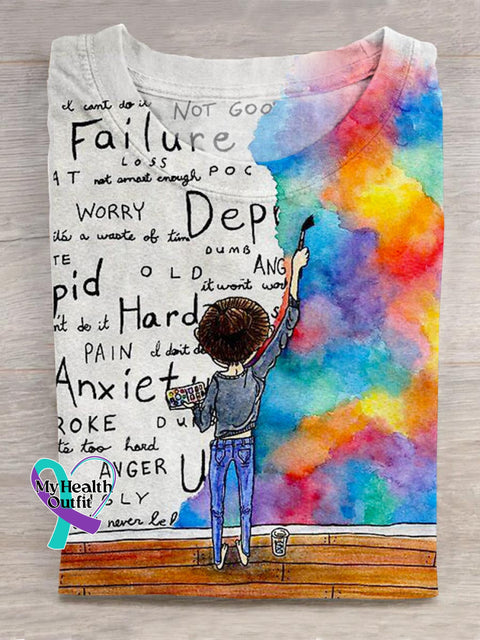 I can't do it NOT GOO
Failure
LOSS
AT not smart enough POC
WORRY Dep
it's a waste of tim
DUMB
TE OLD ANG
it won't wor
pid
n't do it Hard
PAIN I don't de
Anxiet
ROKE DUM
te too hard
ANGER U
LY
never be
My Health
Outfit